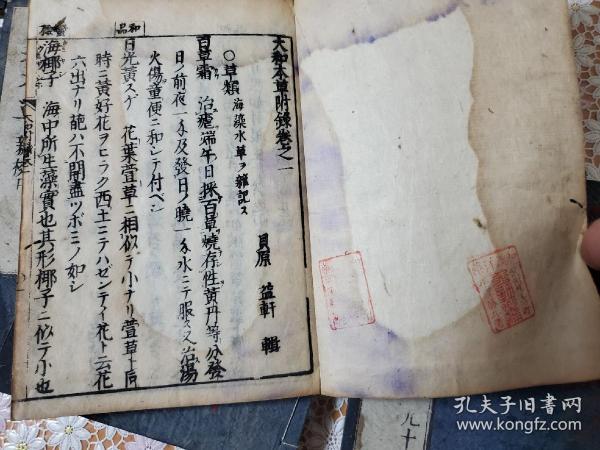 大和本草附録巻之一
貝原益軒輯
○草類 海藻水草ヲ雑記ス
百草霜 治瘧端午日採百草燒存性黄丹等分發
日ノ前夜一匁及發日ノ曉一匁水ニテ服ス又治湯
火傷童便ニ和シテ付ベシ
和品
日光黄スゲ 花葉萱草ニ相似テ小ナリ萱草ト同
時ニ黄好花ヲヒラク西土ニテハゼンテイ花ト云花
六出ナリ葩ハ不開盡ツボミノ如シ
海椰子 海中所生藻實也其形椰子ニ似テ小也
九十
孔夫子旧书网
www.kongfz.com